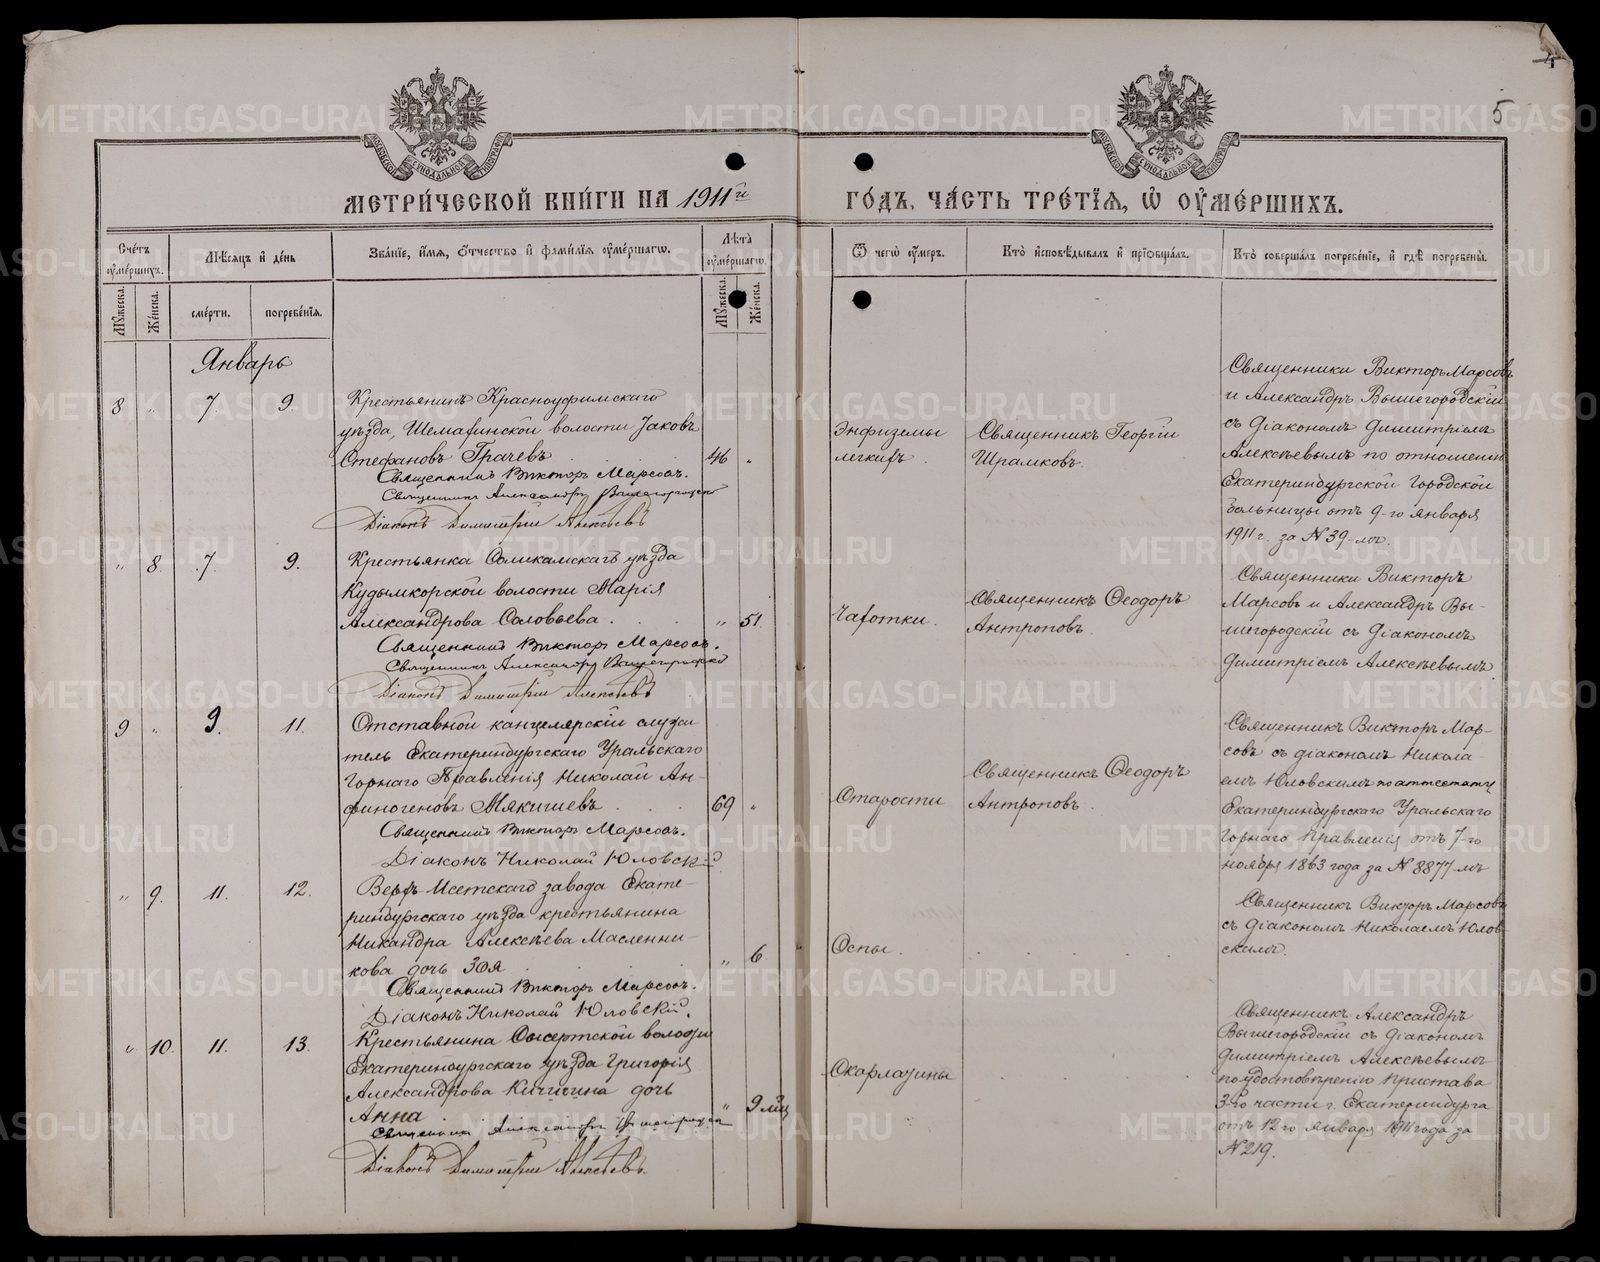 5
МЕТРИЧЕСКОЙ КНИГИ НА 1911й
ГОДЪ, ЧАСТЬ ТРЕТІЯ, Ѡ ОУМЕРШИХЪ.
Счетъ оумершихъ.
Мужеска.
Женска.
Мѣсяцъ и день
смерти.
погребенія.
Званіе, имя, отчество и фамилія оумершагѡ.
Лѣта оумершагѡ.
Мужеска.
Женска.
Ѿ чегѡ оумеръ.
Кто исповѣдывалъ и пріобщалъ.
Кто совершалъ погребеніе, и гдѣ погребены.
Январь
8 " 7. 9.
Крестьянинъ Красноуфимскаго
уѣзда, Шемахинской волости Іаковъ
Стефановъ Грачевъ 46 "
Священникъ Викторъ Марсовъ.
Священникъ Александръ Вышегородскій
Діаконъ Димитрій Алексѣевъ
Энфиземы
легкихъ.
Священникъ Георгій
Шрамковъ.
Священники Викторъ Марсовъ
и Александръ Вышегородскій
съ діакономъ Димитріемъ
Алексѣевымъ по отношенію
Екатеринбургской Городской
больницы отъ 9-го января
1911 г. за № 39-мъ.
" 8. 7. 9.
Крестьянка Соликамскаго уѣзда
Кудымкорской волости Марія
Александрова Соловьева " 51.
Священникъ Викторъ Марсовъ.
Священникъ Александръ Вышегородскій
Діаконъ Димитрій Алексѣевъ
Чахотки.
Священникъ Ѳеодоръ
Антроповъ.
Священники Викторъ
Марсовъ и Александръ Вы-
шегородскій съ діакономъ
Димитріемъ Алексѣевымъ.
9 " 9. 11.
Отставной канцелярскій служи
тель Екатеринбургскаго Уральскаго
Горнаго Правленія Николай Ан-
финогеновъ Мякишевъ 69 "
Священникъ Викторъ Марсовъ.
Діаконъ Николай Юловскій
Старости
Священникъ Ѳеодоръ
Антроповъ.
Священникъ Викторъ Мар-
совъ съ діакономъ Никола-
емъ Юловскимъ по аттестату
Екатеринбургскаго Уральскаго
Горнаго Правленія отъ 7-го
ноября 1863 года за № 8877-мъ
" 9. 11. 12.
Верхъ-Исетскаго завода Екате-
ринбургскаго уѣзда крестьянина
Никандра Алексѣева Масленни-
кова дочь Зоя " 6
Священникъ Викторъ Марсовъ.
Діаконъ Николай Юловскій.
Оспы.
Священникъ Викторъ Марсовъ
съ діакономъ Николаемъ Юлов
скимъ.
" 10. 11. 13.
Крестьянина Сысертской волости
Екатеринбургскаго уѣзда Григорія
Александрова Кичигина дочь
Анна " 9 мѣс
Священникъ Александръ Вышегородскій
Діаконъ Димитрій Алексѣевъ.
Скарлатины
Священникъ Александръ
Вышегородскій съ діакономъ
Димитріемъ Алексѣевымъ
по удостовѣренію Пристава
3-го части г. Екатеринбурга
отъ 12-го января 1911 года за
№ 219.
METRIKI.GASO-URAL.RU